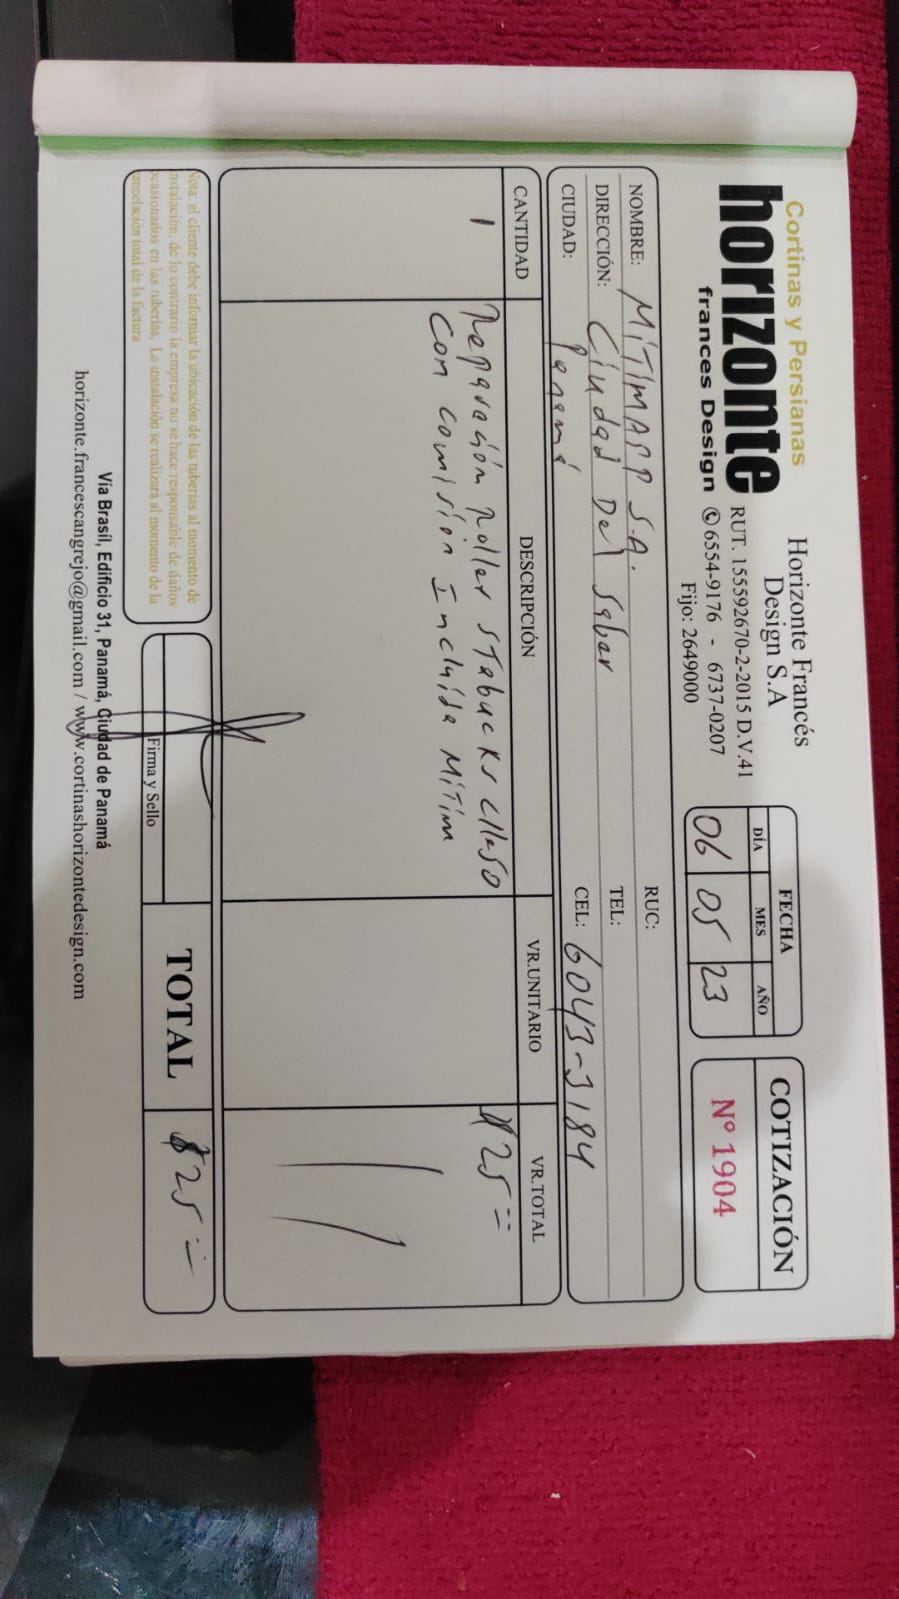 Cortinas y Persianas
horizonte
frances Design
Horizonte Francés
Design S.A
RUT. 155592670-2-2015 D.V.41
6554-9176 - 6737-0207
Fijo: 2649000
FECHA
DÍA MES AÑO
06 05 23
COTIZACIÓN
Nº 1904
NOMBRE: MITIMAPP S.A. RUC:
DIRECCIÓN: Ciudad Del Sabar TEL:
CIUDAD: Panamá CEL: 6043-3184
CANTIDAD DESCRIPCIÓN VR.UNITARIO VR.TOTAL
1 Reparación roller STabucks $25=
Com comisión Incluida MiTim
Nota: el cliente debe informar la ubicación de las tuberías al momento de
instalación, de lo contrario la empresa no se hace responsable de daños
ocasionados en las tuberías. La instalación se realizara al momento de la
cancelación total de la factura
Firma y Sello
TOTAL $25=
Vía Brasíl, Edificio 31, Panamá, Ciudad de Panamá
horizonte.francescangrejo@gmail.com / www.cortinashorizontedesign.com